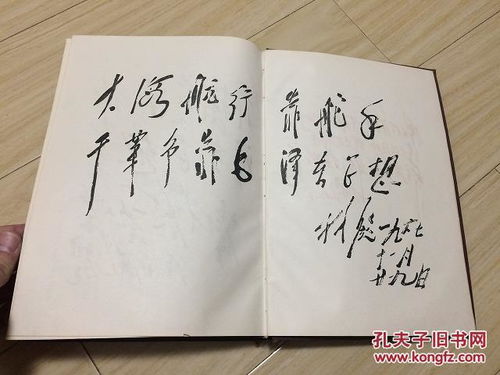 大海航行靠舵手
干革命靠毛泽东思想
林彪
一九六七
十一月
廿九日
孔夫子旧书网
www.kongfz.com